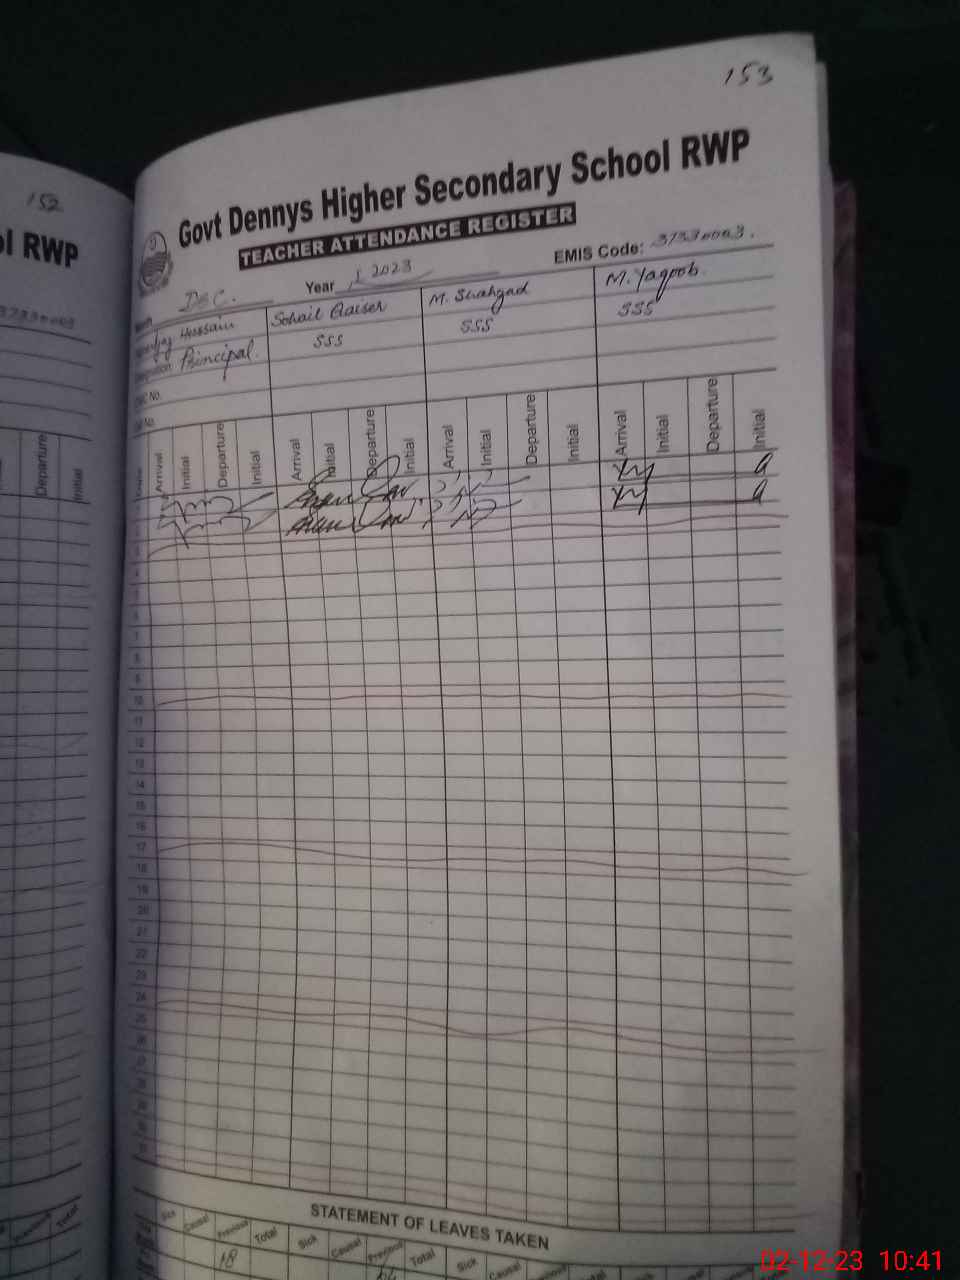 152
153
RWP
Govt Dennys Higher Secondary School RWP
TEACHER ATTENDANCE REGISTER
EMIS Code: 37330003.
Dec. Year 2023
Hussain Sohail Qaiser M. Shahzad M. Yaqoob
Principal. SSS SSS SSS
No.
Departure Initial
Arrival Initial Departure Initial Arrival Initial Departure Initial Arrival Initial Departure Initial Arrival Initial Departure Initial
4
5
6
7
8
9
10
11
12
13
14
15
16
17
18
19
20
21
22
23
24
25
26
27
STATEMENT OF LEAVES TAKEN
Sick Causal Previous Total Sick Causal Previous Total Sick Causal
Previous Total
18
02-12-23 10:41